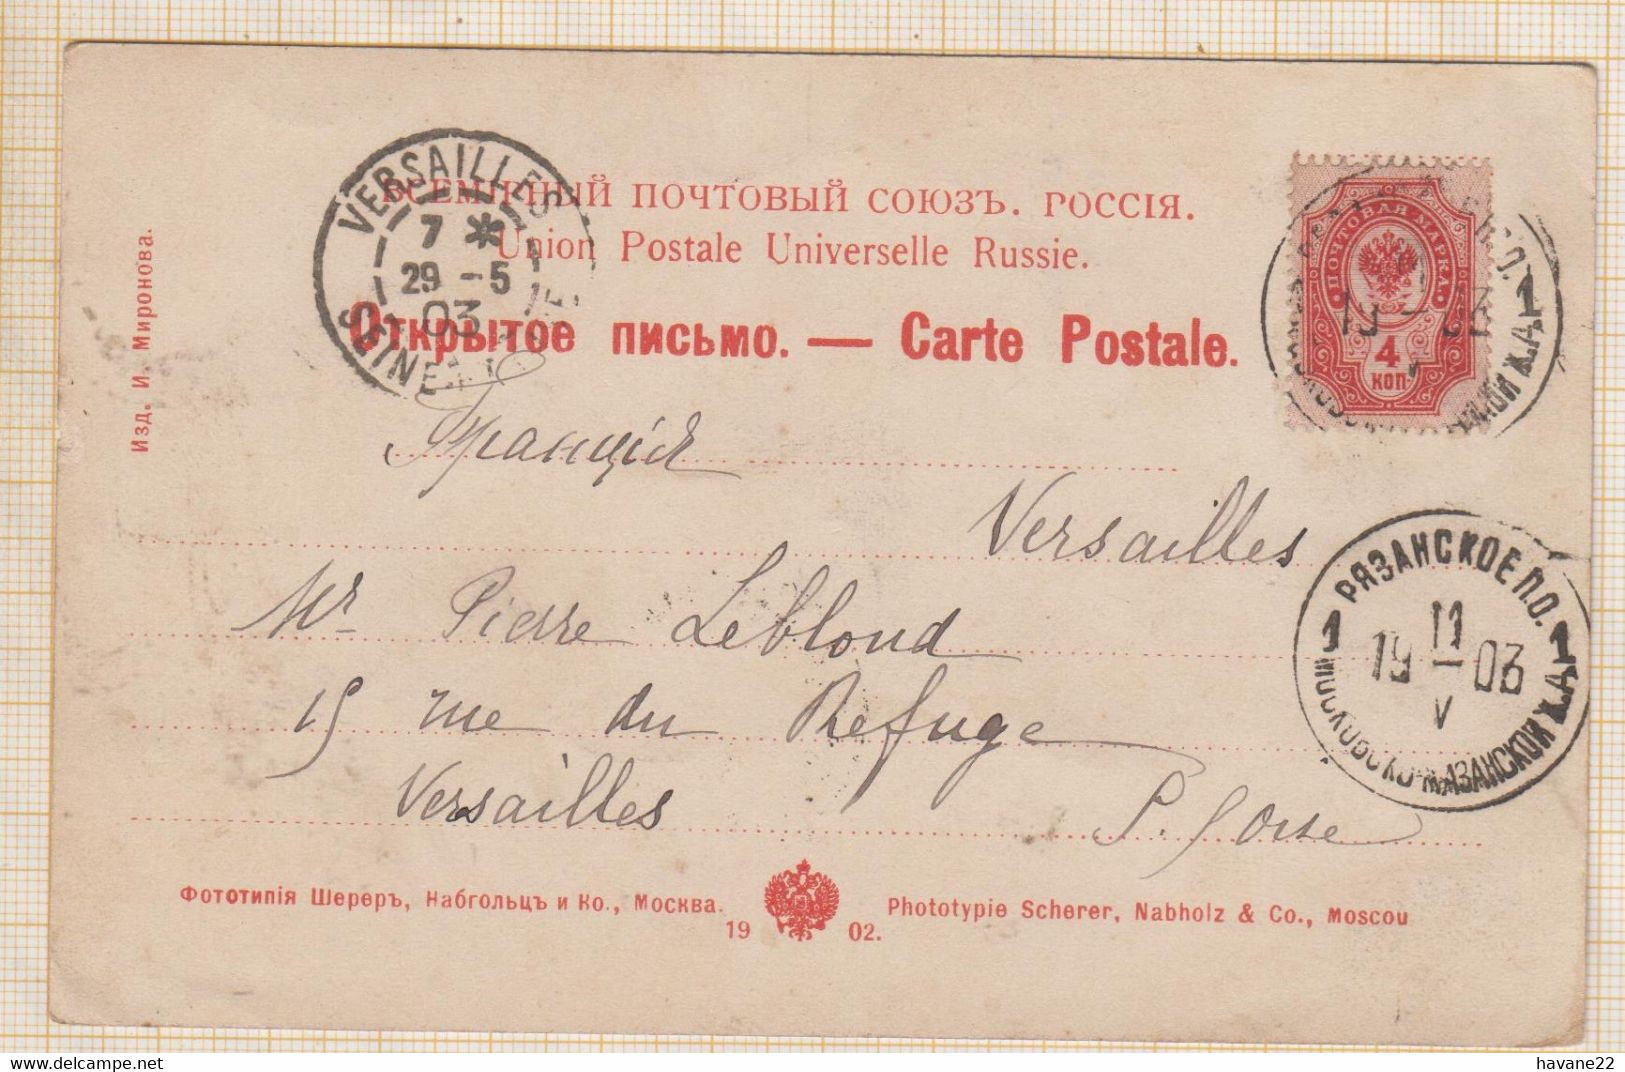 ВСЕМІРНЫЙ ПОЧТОВЫЙ СОЮЗЪ. РОССІЯ.
Union Postale Universelle Russie.
Открытое письмо. — Carte Postale.
Изд. И. Миронова.
VERSAILLES
7 *
29 - 5
03
SEINE
ПОЧТОВАЯ МАРКА
4
КОП
19 03
Франція
Versailles
Mr Pierre Leblond
15 rue du Refuge
Versailles
РЯЗАНСКОЕ П.О.
1 11 1
19 — 03
V
МОСКОВСКО-КАЗАНСКОЙ Ж.Д.
Фототипія Шереръ, Набгольцъ и Ко., Москва.
19 02.
Phototypie Scherer, Nabholz & Co., Moscou
havane22
www.delcampe.net